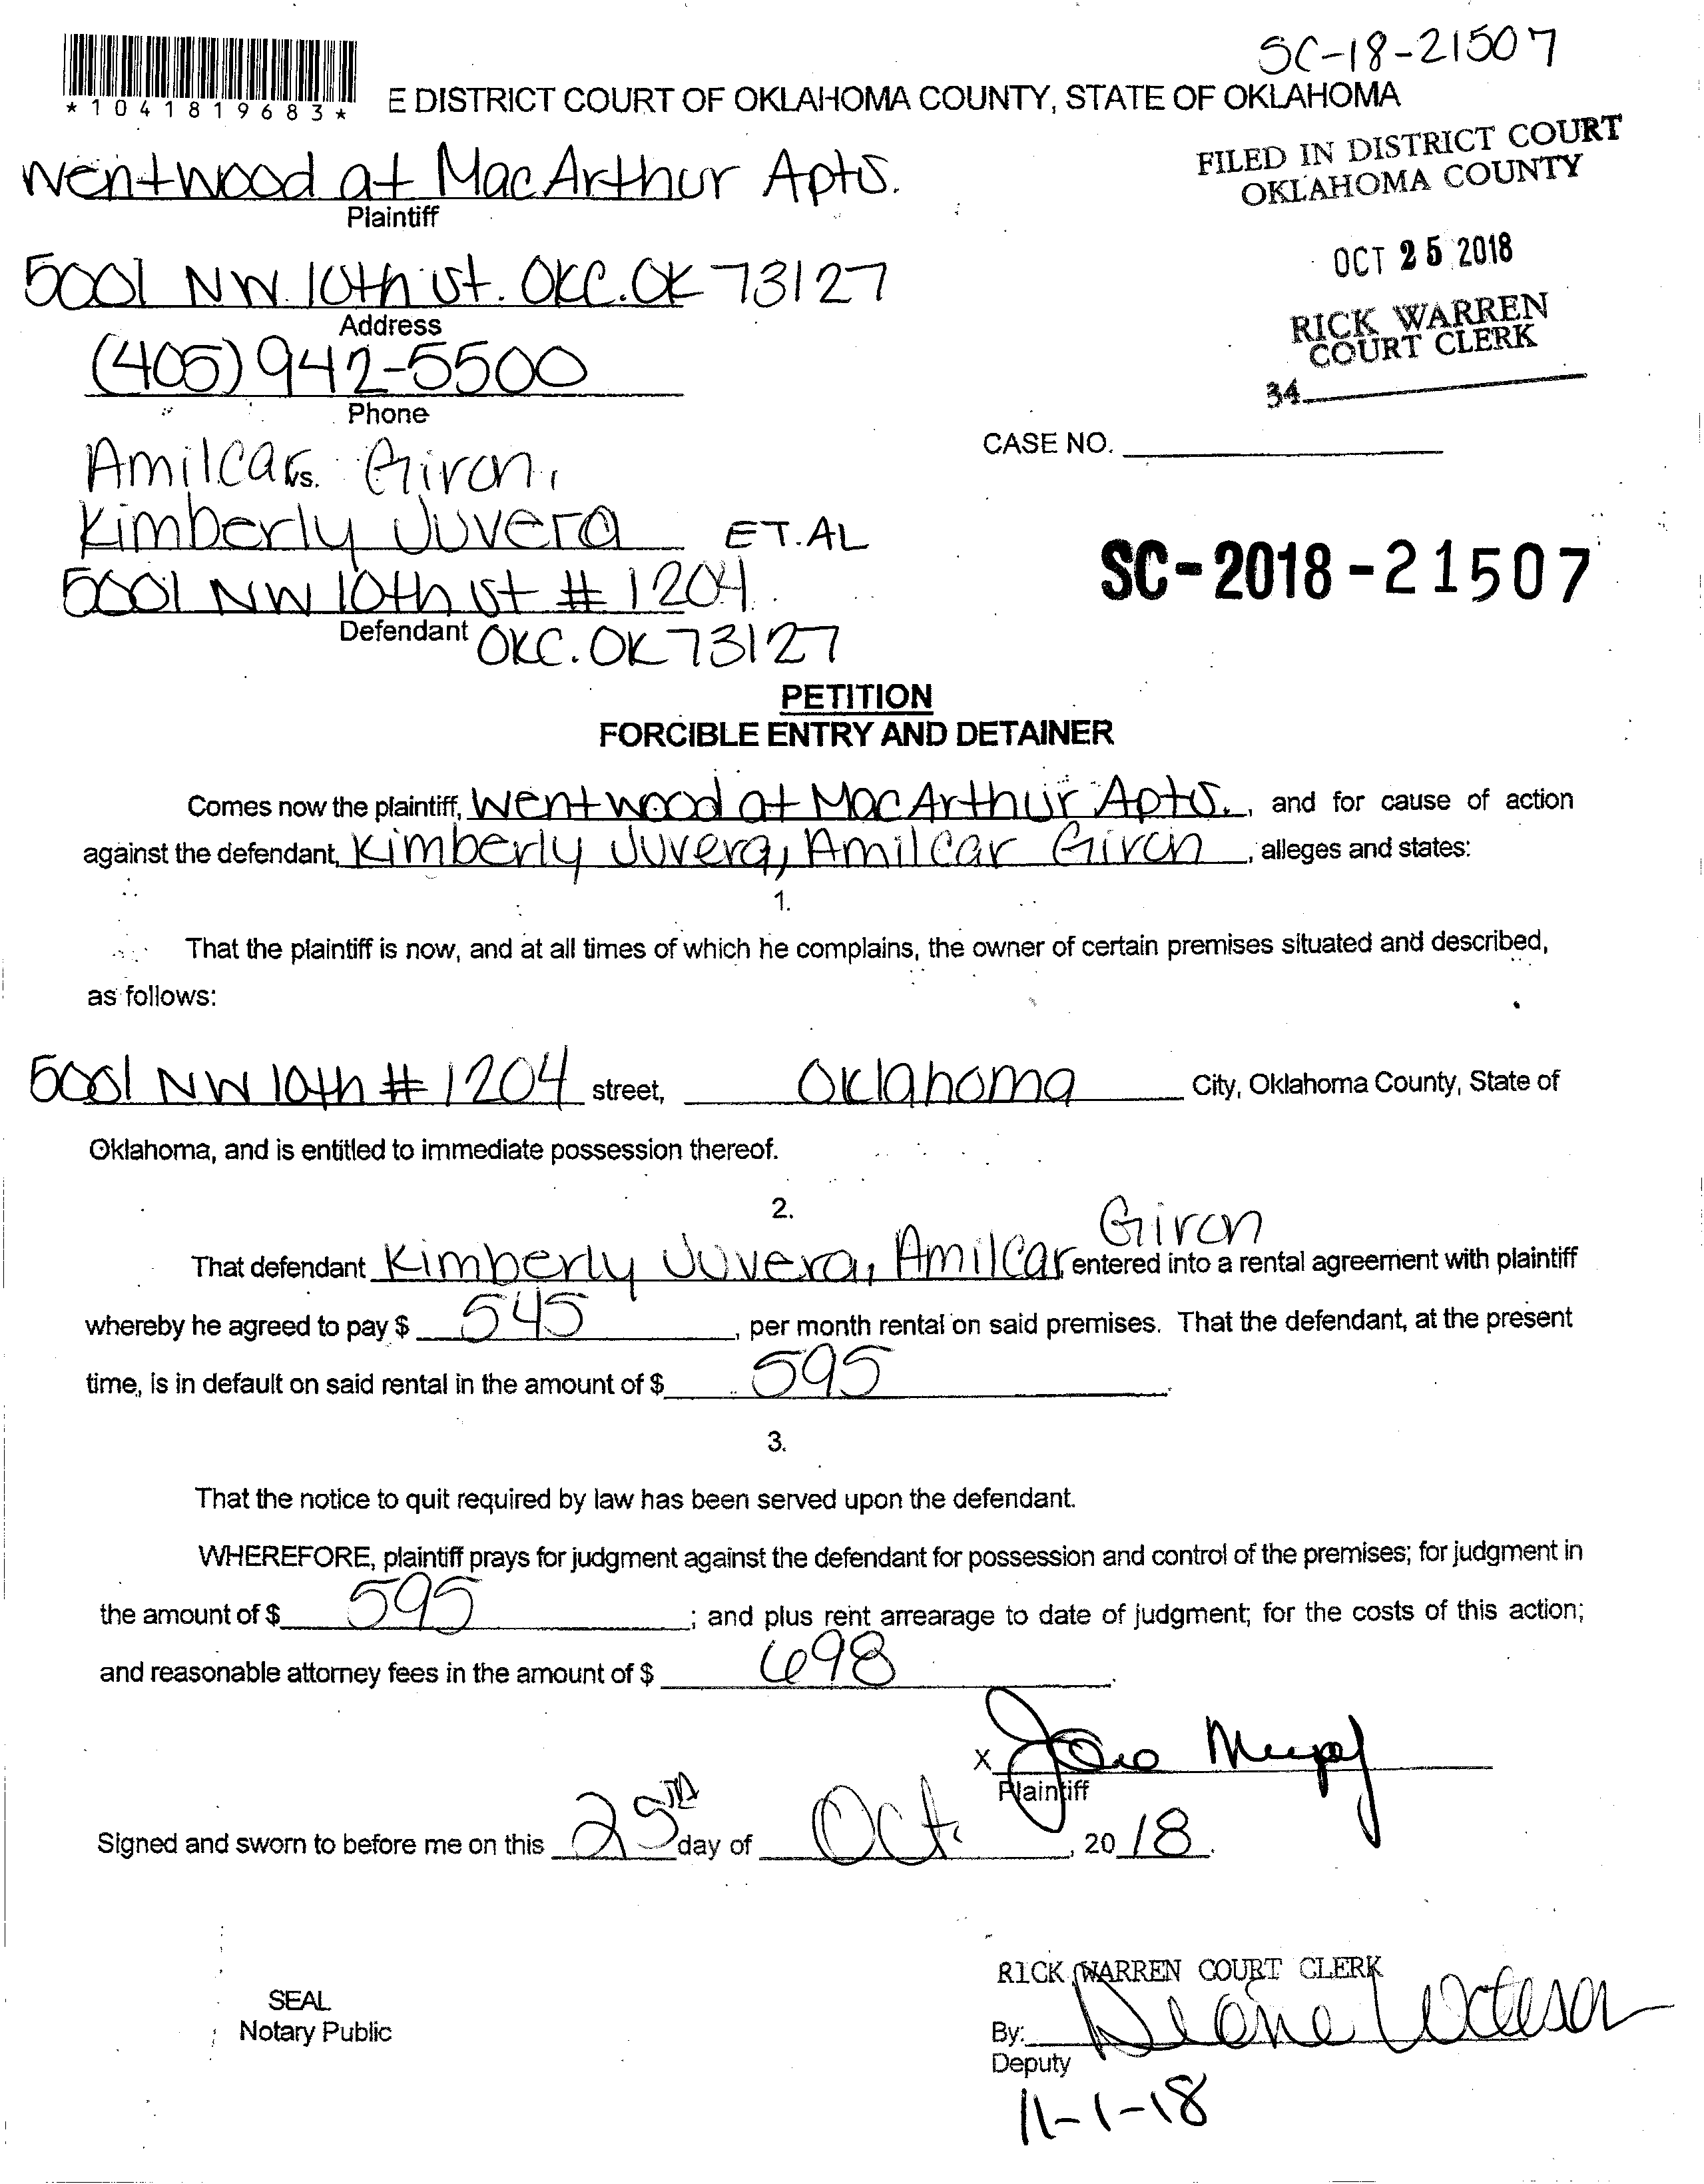 SC-18-21507
*1041819683*
E DISTRICT COURT OF OKLAHOMA COUNTY, STATE OF OKLAHOMA
Wentwood at MacArthur Apts.
Plaintiff
FILED IN DISTRICT COURT
OKLAHOMA COUNTY
5001 NW 10th st. OKC. OK 73127
Address
OCT 25 2018
(405) 942-5500
Phone
RICK WARREN
COURT CLERK
34
Amilcar vs. Giron,
CASE NO.
Kimberly Juvera ET.AL
5001 NW 10th st # 1204
Defendant OKC. OK 73127
SC-2018-21507
PETITION
FORCIBLE ENTRY AND DETAINER
Comes now the plaintiff, Wentwood at MacArthur Apts., and for cause of action
against the defendant, Kimberly Juvera, Amilcar Giron, alleges and states:
1.
That the plaintiff is now, and at all times of which he complains, the owner of certain premises situated and described,
as follows:
5001 NW 10th # 1204 street, Oklahoma City, Oklahoma County, State of
Oklahoma, and is entitled to immediate possession thereof.
2.
Giron
That defendant Kimberly Juvera, Amilcar entered into a rental agreement with plaintiff
whereby he agreed to pay $ 545, per month rental on said premises. That the defendant, at the present
time, is in default on said rental in the amount of $ 595.
3.
That the notice to quit required by law has been served upon the defendant.
WHEREFORE, plaintiff prays for judgment against the defendant for possession and control of the premises; for judgment in
the amount of $ 595; and plus rent arrearage to date of judgment; for the costs of this action;
and reasonable attorney fees in the amount of $ 698.
X
Plaintiff
Signed and sworn to before me on this 25TH day of Oct., 2018.
RICK WARREN COURT CLERK
SEAL
Notary Public
By: Diane
Deputy
11-1-18